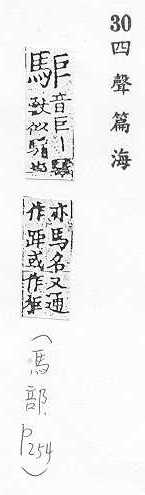 30四聲篇海
駏音巨丨驉獸似騾也
亦馬名又通作距或作䮫
(馬部 P254)